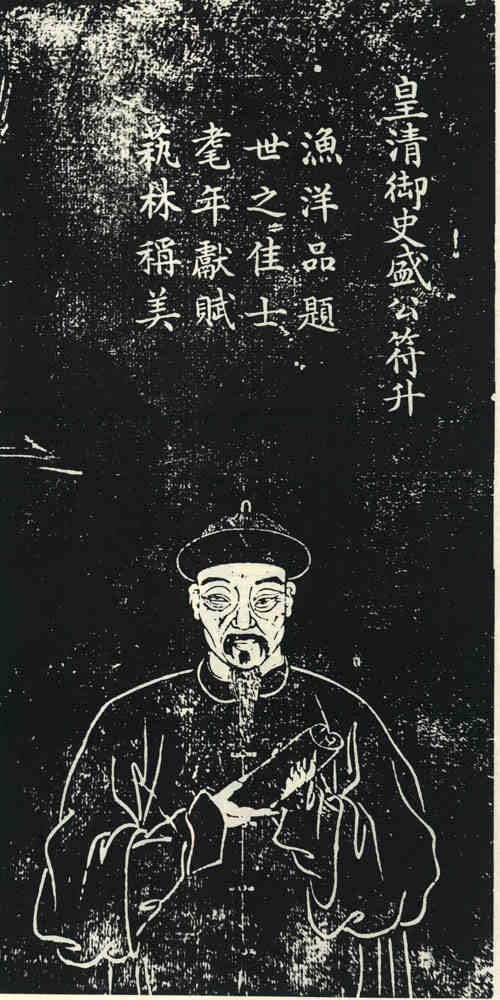 皇清御史盛公符升
漁洋品題
世之佳士
耄年獻賦
蓺林稱美